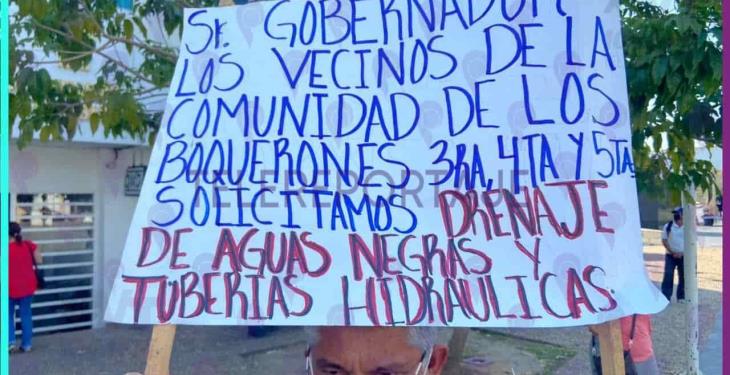 Sr. GOBERNADOR:
LOS VECINOS DE LA
COMUNIDAD DE LOS
BOQUERONES 3RA, 4TA Y 5TA.
SOLICITAMOS DRENAJE
DE AGUAS NEGRAS Y
TUBERIAS HIDRAULICAS.